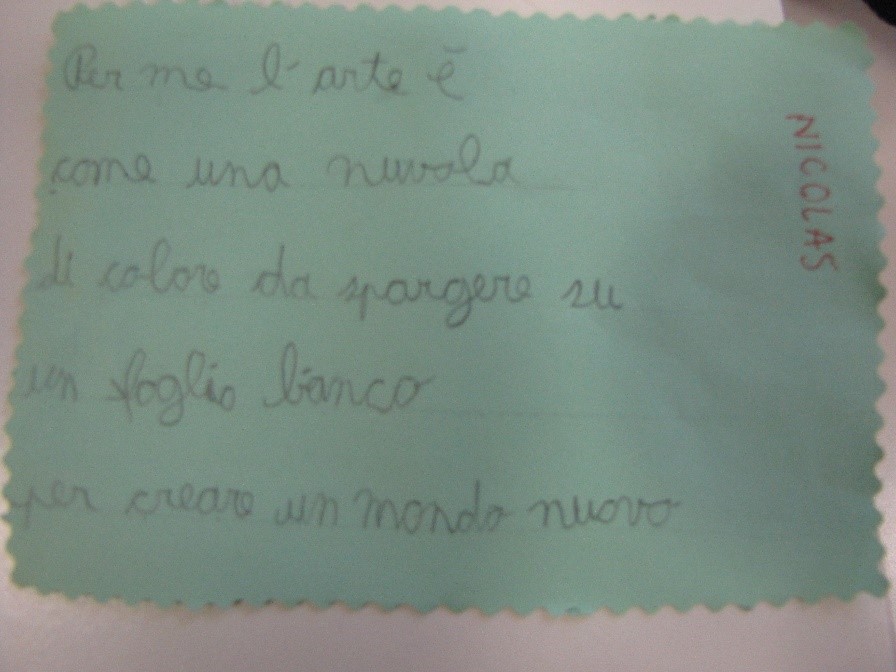 Per me l'arte è
come una nuvola
di colore da spargere su
un foglio bianco
per creare un mondo nuovo
NICOLAS